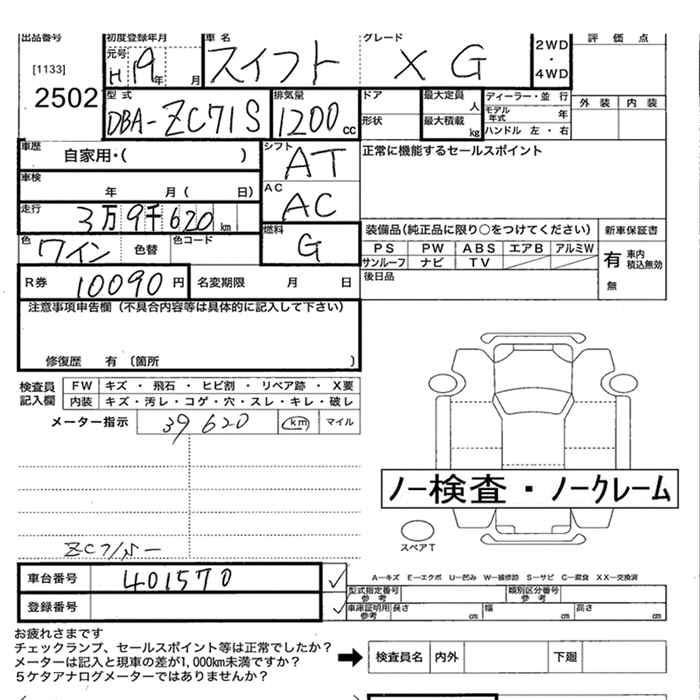 出品番号 初度登録年月 車名 グレード 評価点
[1133] 元号 H19年 月 スイフト XG 2WD・4WD
2502 型式 DBA-ZC71S 排気量 1200cc ドア 最大定員 人 ディーラー・並行 外装 内装
形状 最大積載 kg モデル年式 年
ハンドル 左・右
車歴 自家用・( ) シフト AT 正常に機能するセールスポイント
車検 年 月( 日) AC AC
走行 3万9千620km 装備品(純正品に限り○をつけてください) 新車保証書
色 ワイン 色替 色コード 燃料 G PS PW ABS エアB アルミW 有 車内積込無効
サンルーフ ナビ TV 無
R券 10090円 名変期限 月 日 後日品
注意事項申告欄(不具合内容等は具体的に記入して下さい)
修復歴 有〔箇所 〕
検査員記入欄 FW キズ・飛石・ヒビ割・リペア跡・X要
内装 キズ・汚レ・コゲ・穴・スレ・キレ・破レ
メーター指示 39620 km マイル
ノー検査・ノークレーム
スペアT
ZC71S-
車台番号 401570 A-キズ E-エクボ U-凹み W-補修跡 S-サビ C-腐食 XX-交換済
型式指定番号 参考 類別区分番号 参考
登録番号 車庫証明用 参考 長さ cm 幅 cm 高さ cm
お疲れさまです
チェックランプ、セールスポイント等は正常でしたか?
メーターは記入と現車の差が1,000km未満ですか? 検査員名 内外 下廻
5ケタアナログメーターではありませんか?